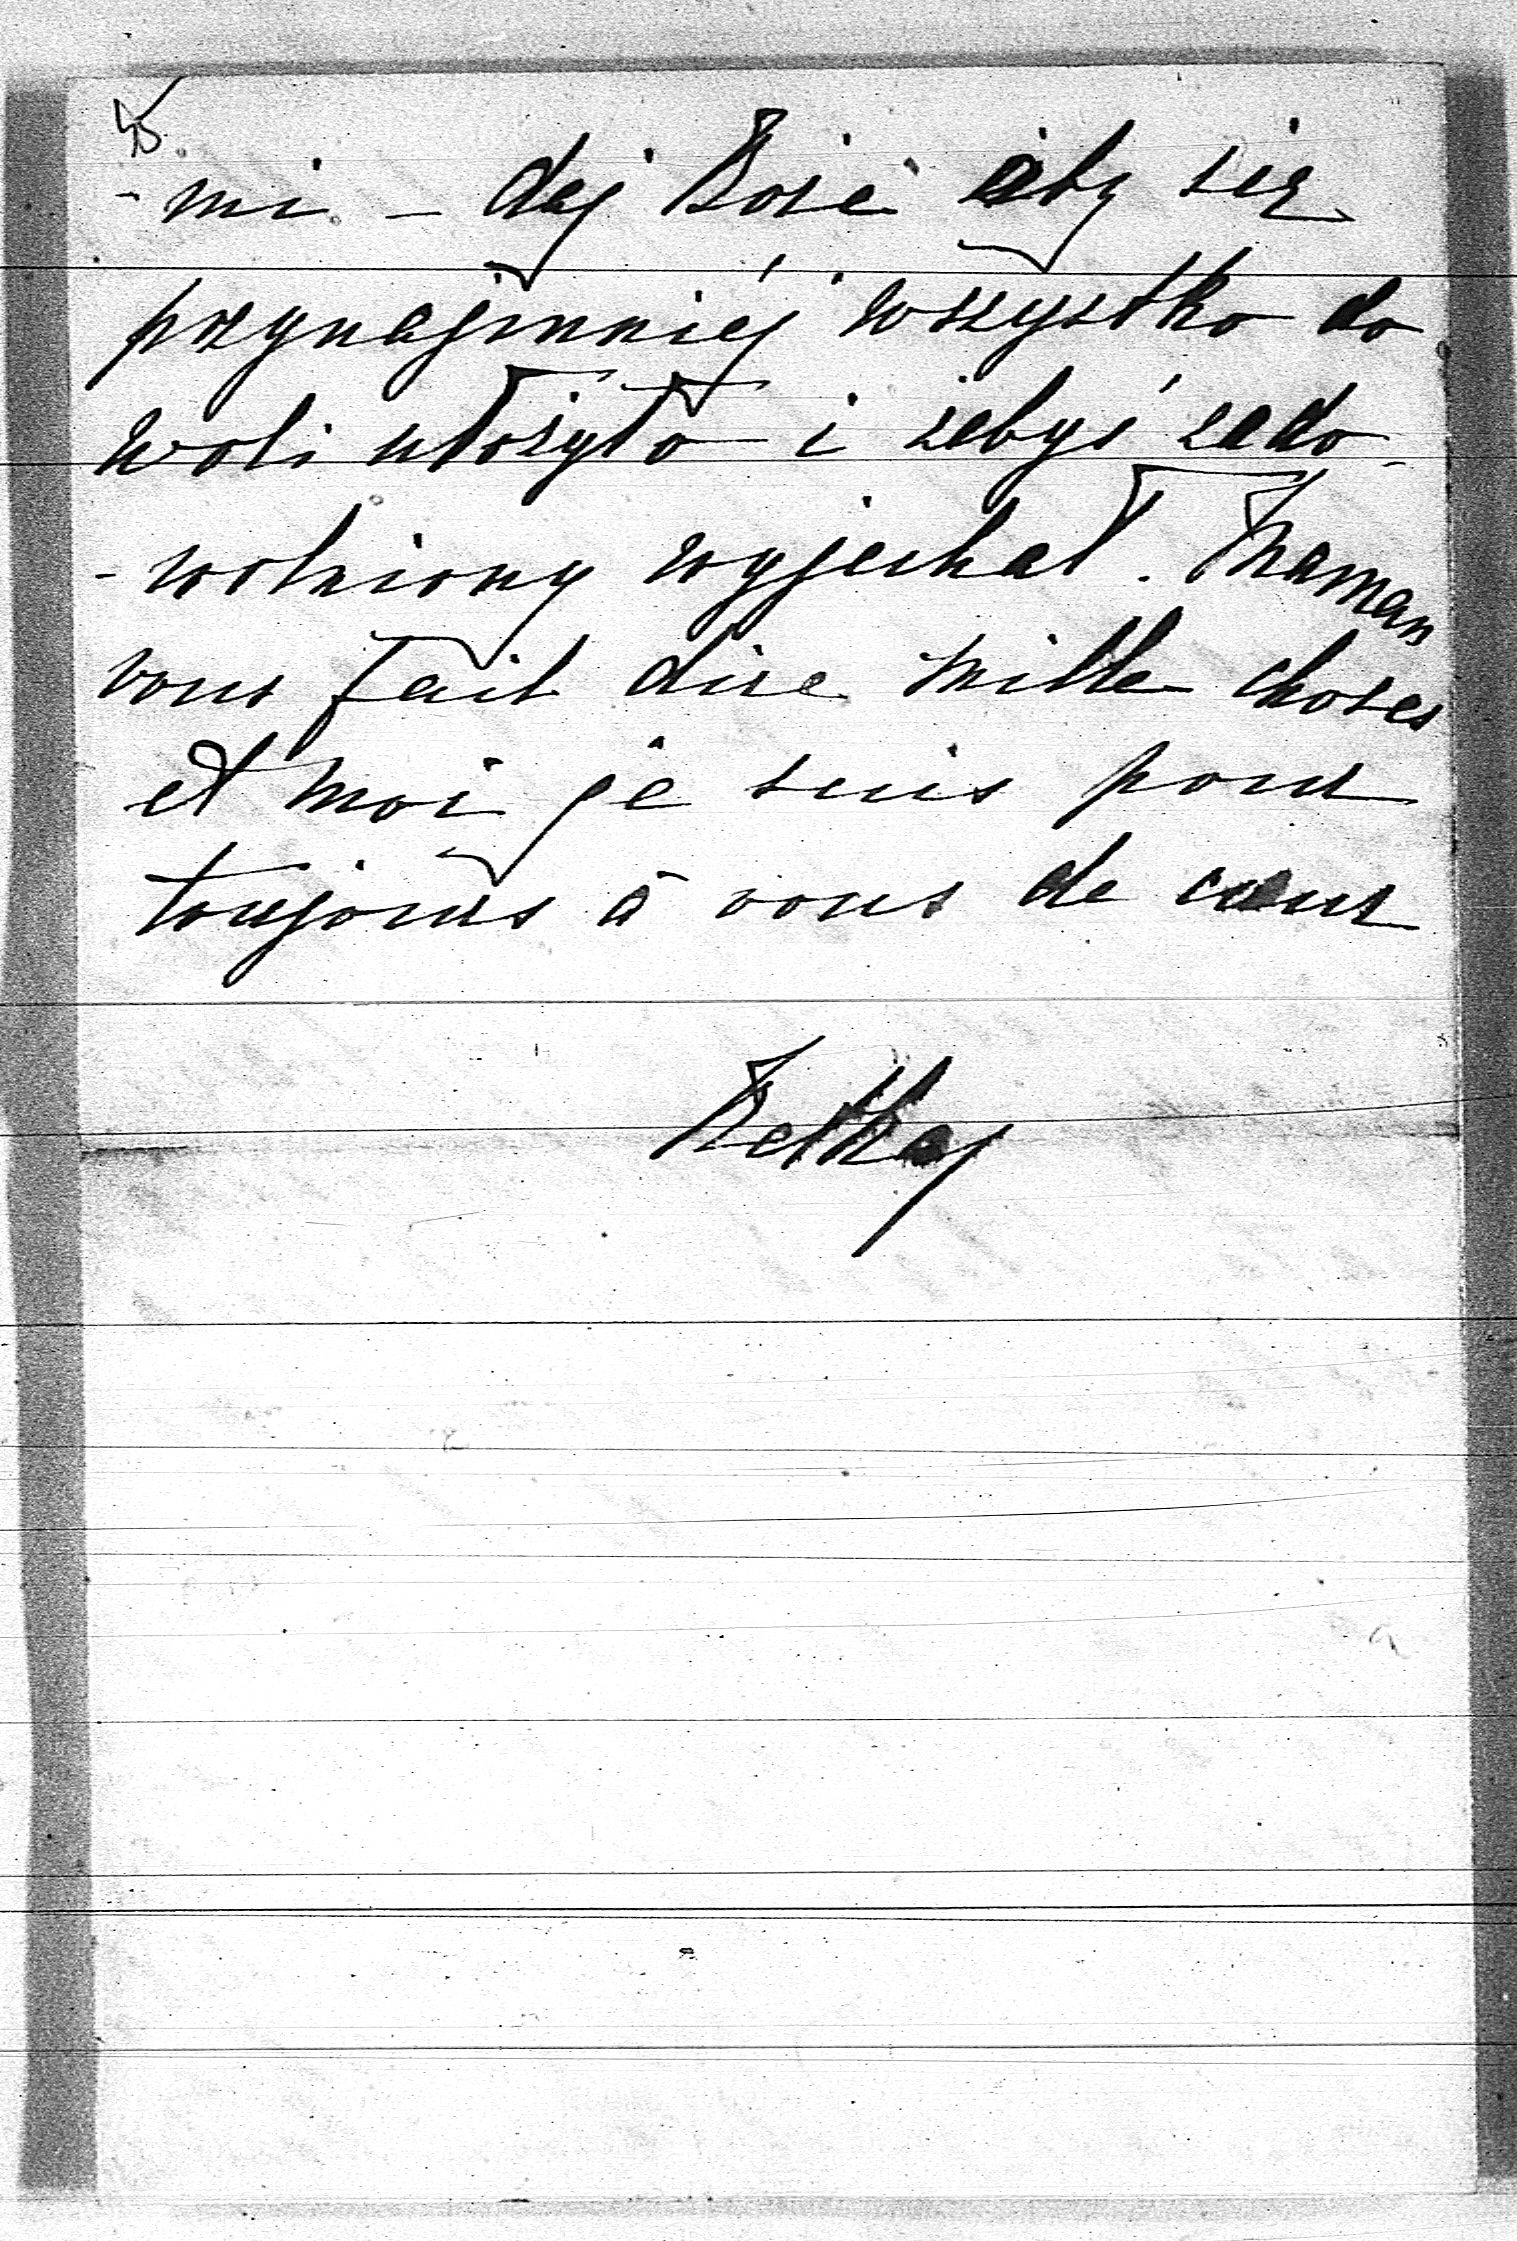 45
-mi – daj Boże ażeby się
przynajmniéj wszystko do
woli ułożyło i żebyś zado-
-wolniony wyjechał. Maman
vous fait dire mille choses
et moi je suis pour
toujours à vous de cœur